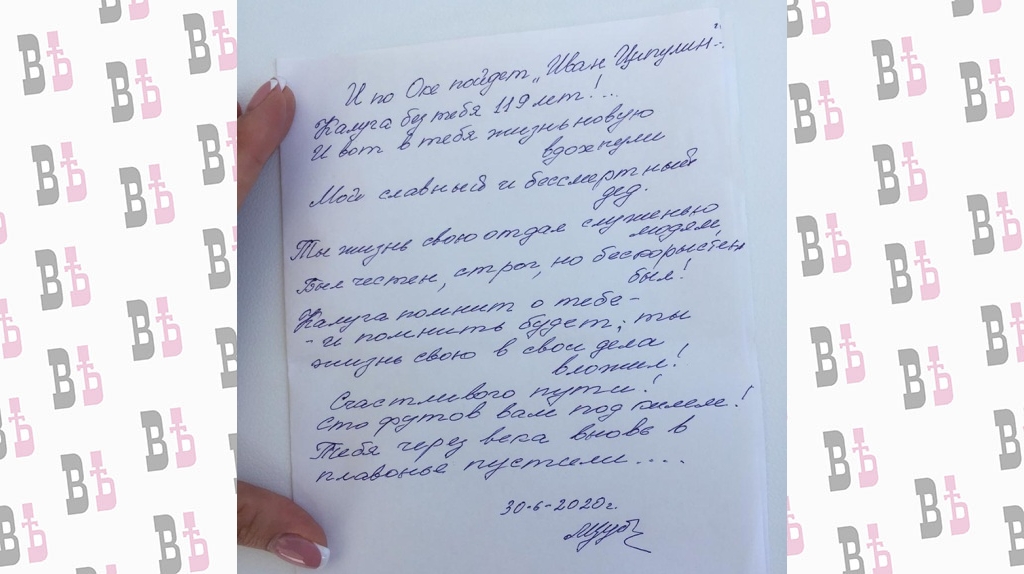 И по Оке пойдет „Иван Ципулин"..
Калуга без тебя 119 лет!...
И вот в тебя жизнь новую
вдохнули
Мой славный и бессмертный
дед.
Ты жизнь свою отдал служенью
людям,
Был честен, строг, но бескорыстен
был!
Калуга помнит о тебе -
- и помнить будет; ты
жизнь свою в свои дела
вложил!
Счастливого пути!
сто футов вам под килем!
Тебя через века вновь в
плавонье пустили....
30-6-2020г.